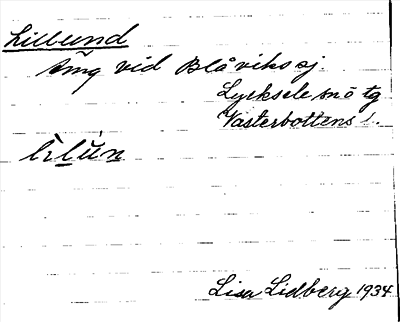 Lillund
äng vid Blåviksj.
Lycksele snö tg
Västerbottens l.
Lisa Lidberg 1934